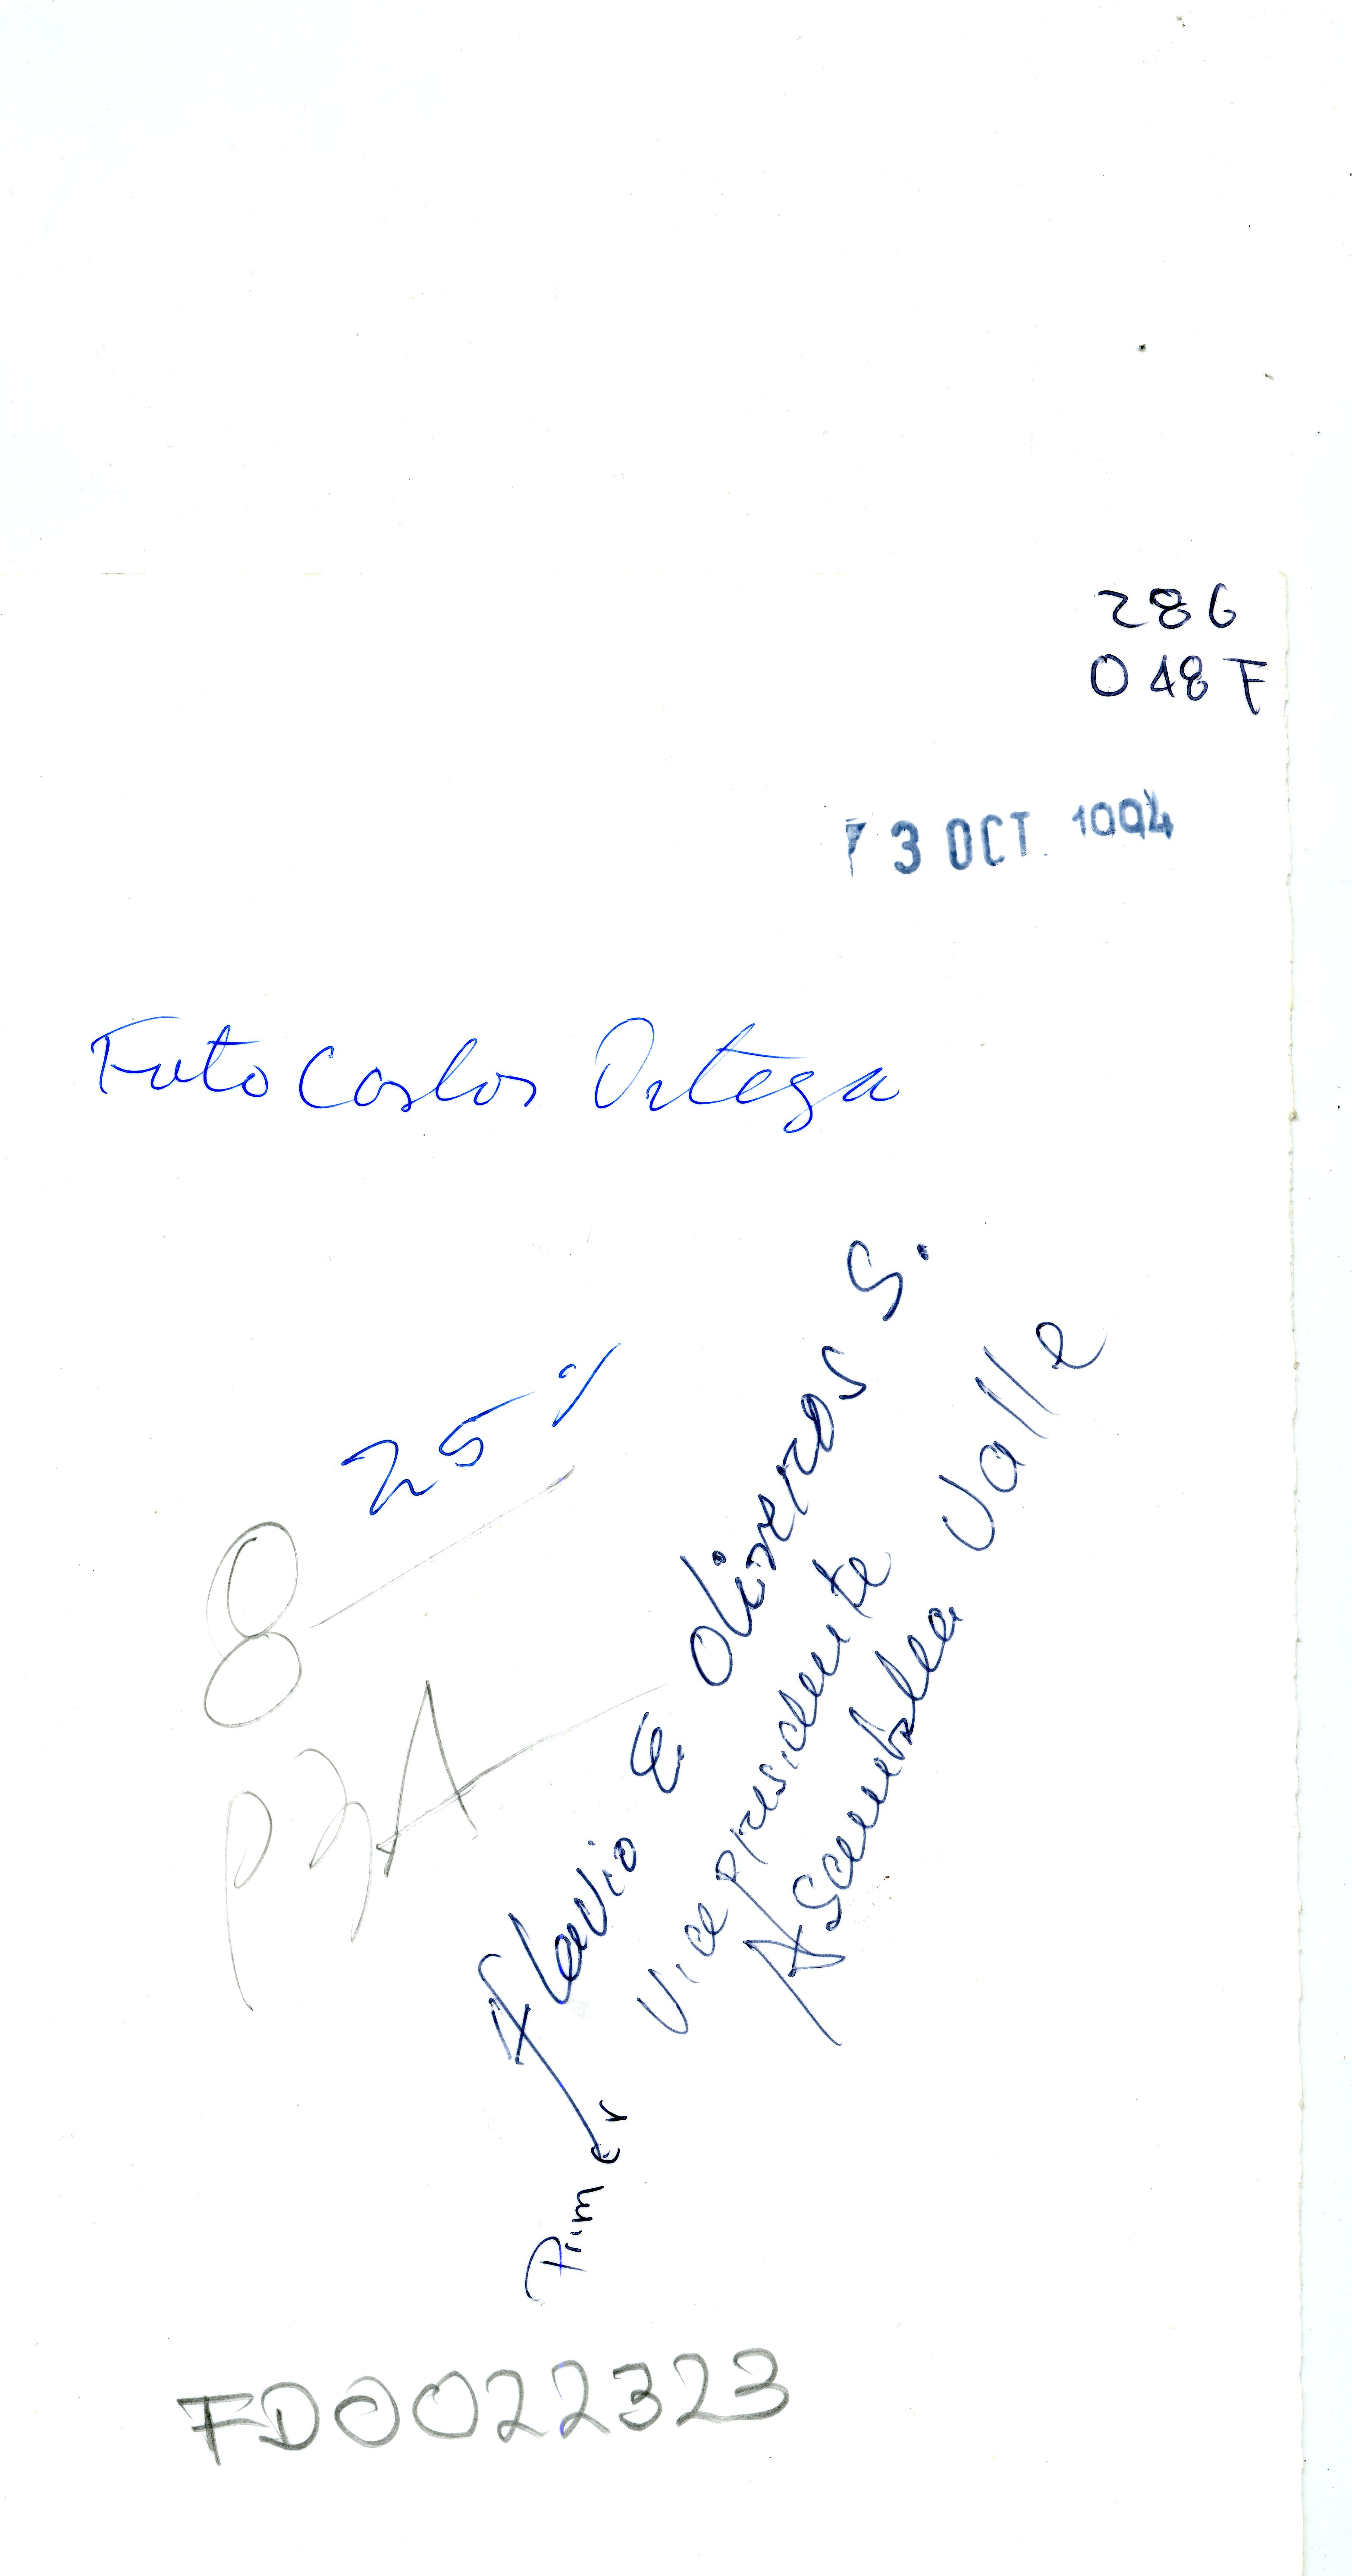 286
048F
3 OCT. 1994
Foto Carlos Ortega
25 %
8
P3A
Flavio E Oliveros S.
Primer Vicepresidente
Asamblea Valle
FD0022323